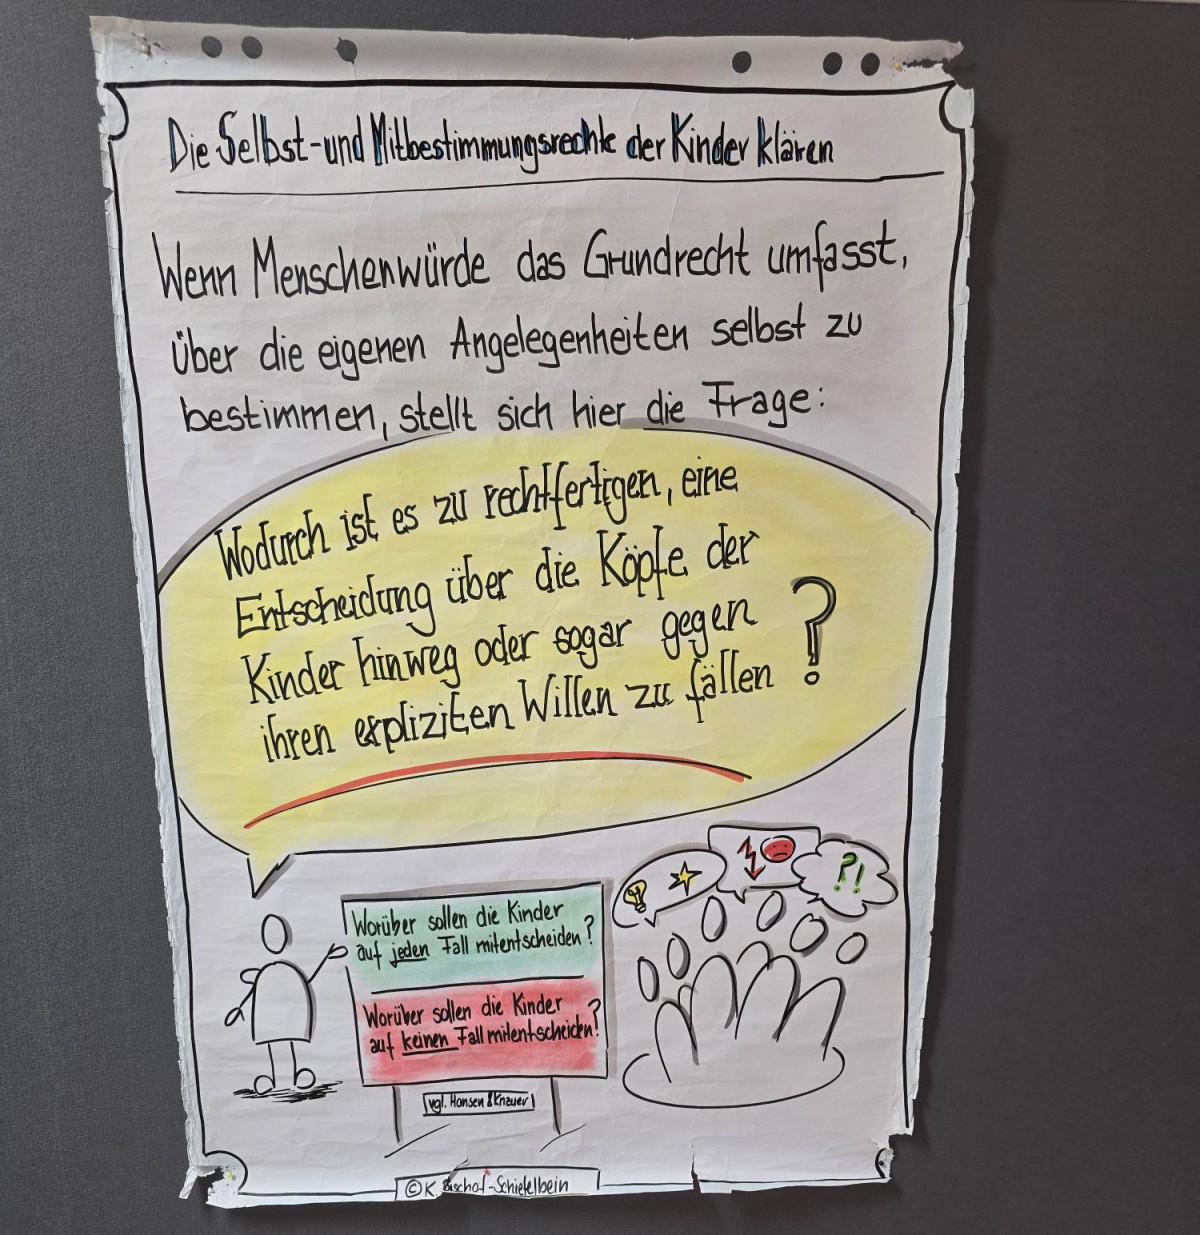 Die Selbst- und Mitbestimmungsrechte der Kinder klären
Wenn Menschenwürde das Grundrecht umfasst,
über die eigenen Angelegenheiten selbst zu
bestimmen, stellt sich hier die Frage:
Wodurch ist es zu rechtfertigen, eine
Entscheidung über die Köpfe der
Kinder hinweg oder sogar gegen
ihren expliziten Willen zu fällen ?
?!
Worüber sollen die Kinder
auf jeden Fall mitentscheiden?
Worüber sollen die Kinder
auf keinen Fall mitentscheiden?
vgl. Hansen & Knauer
© K. Bischof-Schiefelbein